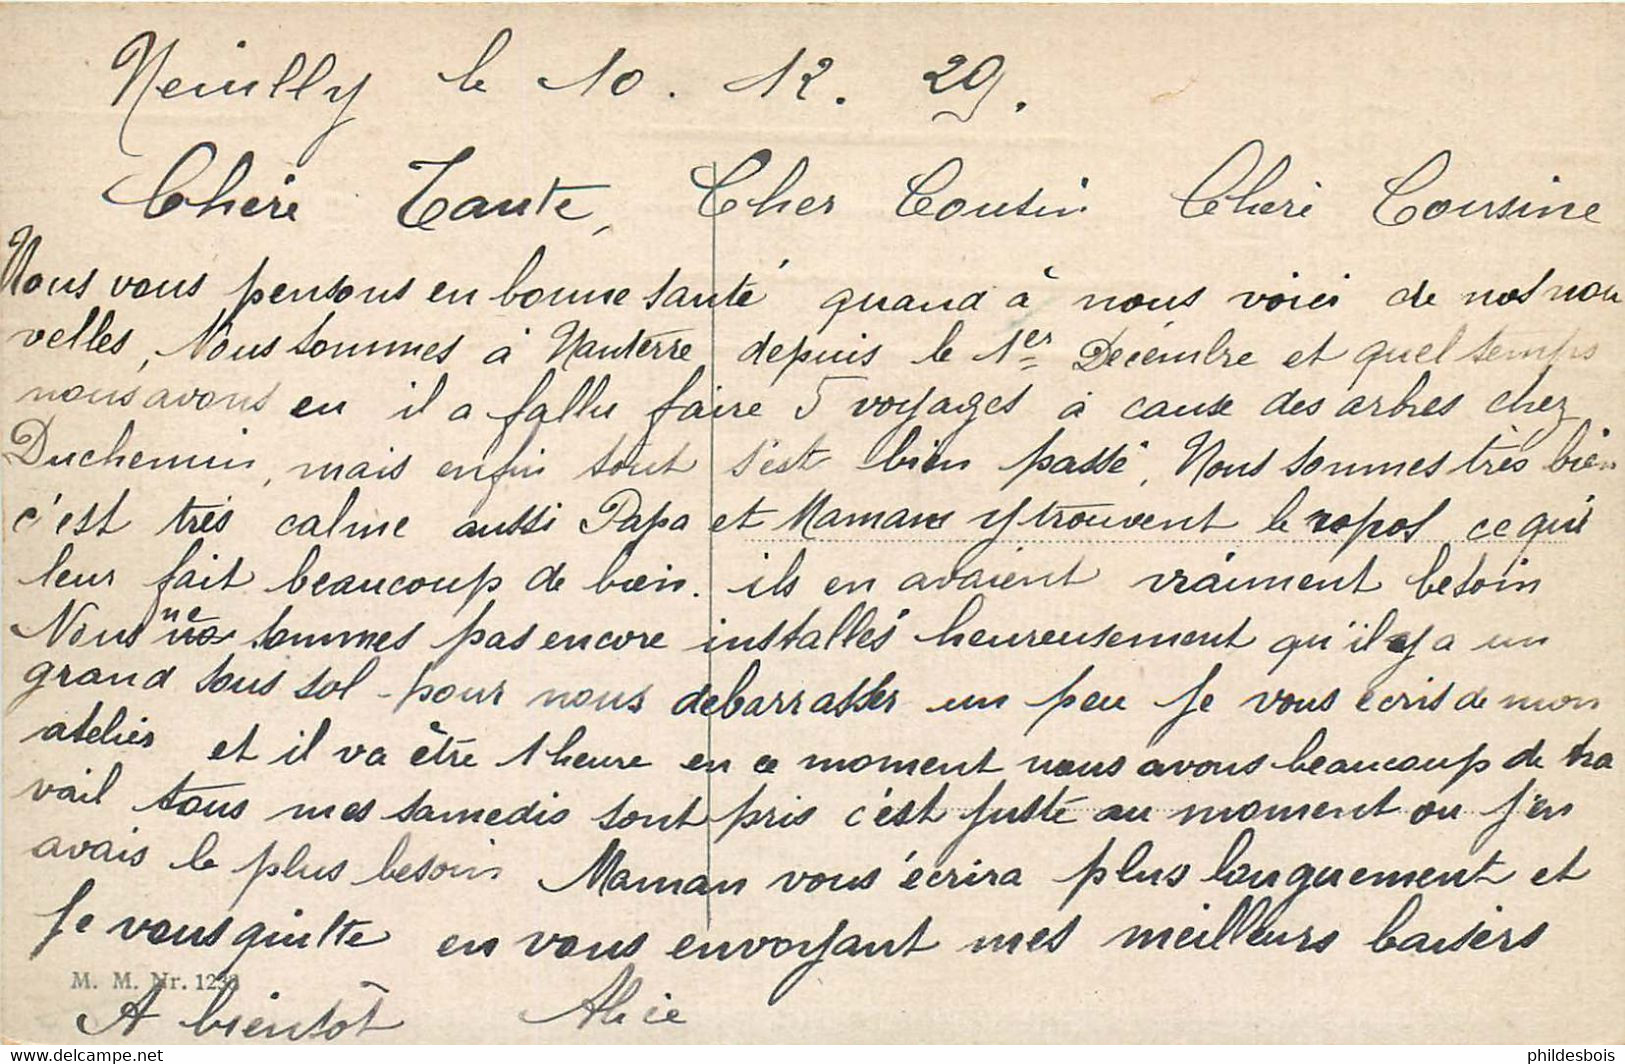 Neuilly le 10. 12. 29.
Chère Tante, Cher Cousin Chère Cousine
Nous vous pensons en bonne santé quand à nous voici de nos nou
velles, Nous sommes à Nanterre depuis le 1er Décembre et quel temps
nous avons eu il a fallu faire 5 voyages à cause des arbres chez
Duchemin, mais enfin tout s'est bien passé, Nous sommes très bien
c'est très calme aussi Papa et Maman y trouvent le repos ce qui
leur fait beaucoup de bien. ils en avaient vraiment besoin
Nous ne sommes pas encore installés heureusement qu'il y a un
grand sous sol - pour nous debarrasser un peu Je vous écris de mon
atelier et il va être 1 heure en ce moment nous avons beaucoup de tra
vail tous mes samedis sont pris c'est juste au moment ou j'en
avais le plus besoin Maman vous écrira plus longuement et
Je vous quitte en vous envoyant mes meilleurs baisers
M. M. Nr. 1233
A bientôt Alice
www.delcampe.net
phildesbois